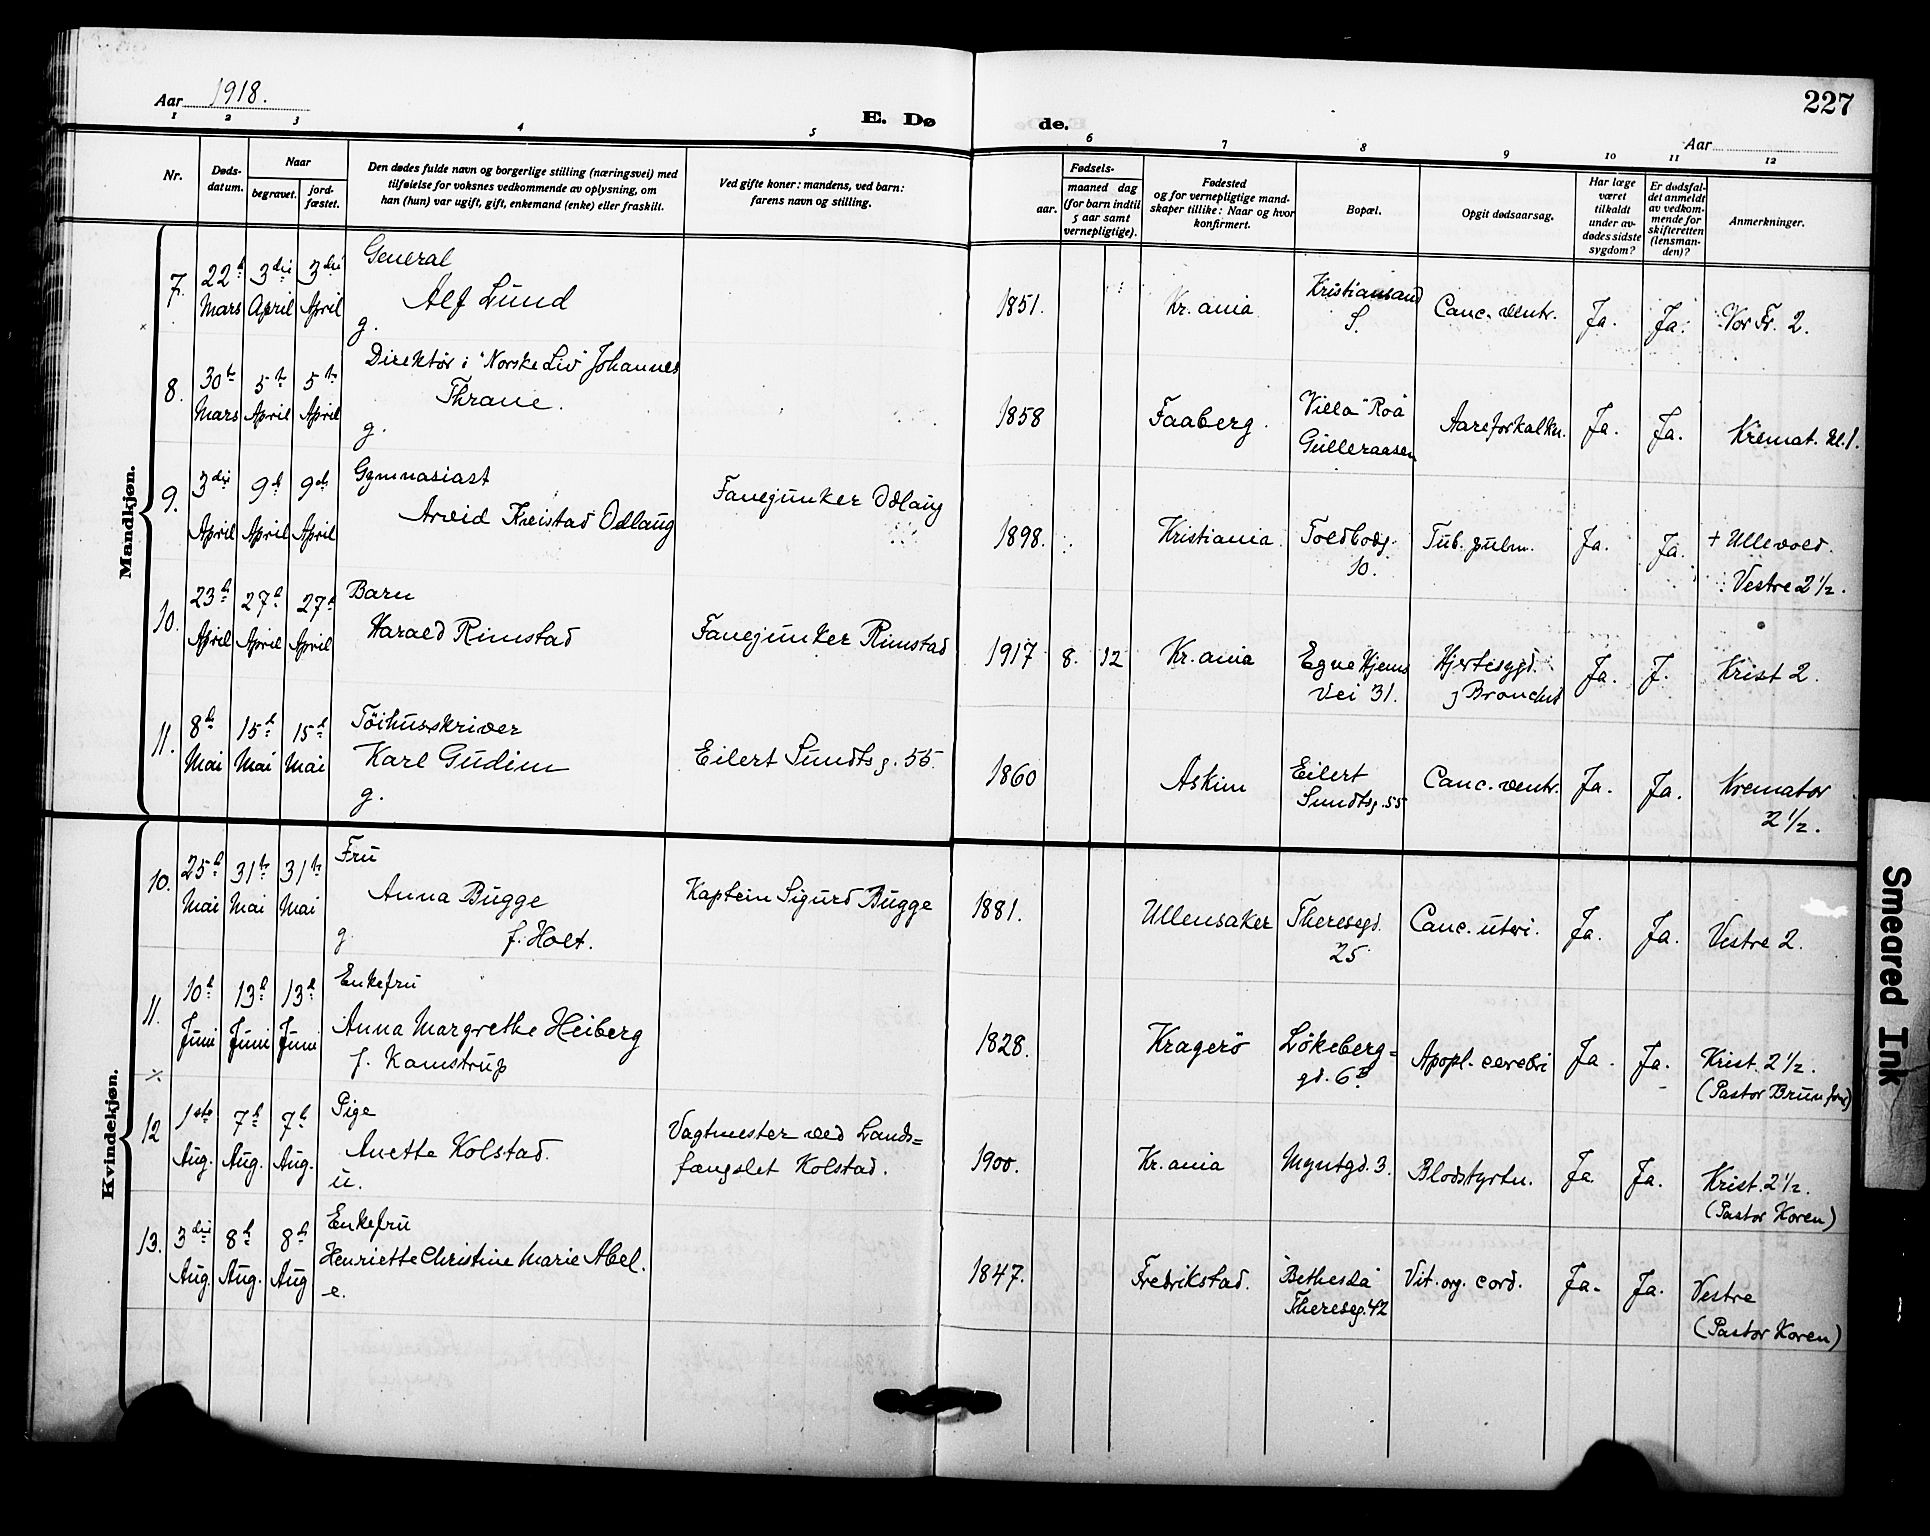 Aar 1918.
E. Døde.
227
Aar
1 2 3 4 5 6 7 8 9 10 11 12
Nr.
Døds-datum.
Naar
begravet.
jord-fæstet.
Den dødes fulde navn og borgerlige stilling (næringsvei) med
tilføielse for voksnes vedkommende av oplysning, om
han (hun) var ugift, gift, enkemand (enke) eller fraskilt.
Ved gifte koner: mandens, ved barn:
farens navn og stilling.
Fødsels-
aar.
maaned dag
(for barn indtil
5 aar samt
vernepligtige).
Fødested
og for vernepligtige mand-
skaper tillike: Naar og hvor
konfirmert.
Bopæl.
Opgit dødsaarsag.
Har læge
været
tilkaldt
under av-
dødes sidste
sygdom?
Er dødsfal-
det anmeldt
av vedkom-
mende for
skifteretten
(lensman-
den)?
Anmerkninger.
Mandkjøn.
7. 22d Mars 3dri April 3dri April
General
Alf Lund
g.
1851. Kr.ania Kristiansand S. Canc. ventr. Ja. Ja. Vor Fr. 2.
8. 30te Mars 5te April 5te April
Direktør i "Norske Liv" Johannes
Thrane.
g.
1858 Faaberg. Villa "Roa" Gulleraasen Aareforkalkn. Ja. Ja. Kremat. kl. 1.
9. 3dri April 9d April 9de April
Gymnasiast
Arvid Kristad Odlaug
Fanejunker Odlaug
1898. Kristiania Toldbodg. 10. Tub. pulm. Ja. Ja. + Ullevold.
Vestre 2½.
10. 23d April 27d April 27d April
Barn
Harald Rimstad
Fanejunker Rimstad
1917 8. 12 Kr.ania Egne Hjems Vei 31. Hjertesygd. Ja. J. Krist 2.
11. 8de Mai 15d Mai 15d Mai
Töihusskriver
Karl Gudim
g.
Eilert Sundts g. 55.
1860 Askim Eilert Sundtsg. 55 Canc. ventr. Ja. Ja. Kremator
2½.
Kvindekjøn.
10. 25d Mai 31te Mai 31te Mai
Fru
Anna Bugge
g. f. Holt.
Kaptein Sigurd Bugge
1881. Ullensaker Theresegd. 25 Canc. uteri. Ja. Ja. Vestre 2.
11. 10d Juni 13d Juni 13d Juni
Enkefru
Anna Margrethe Heiberg
f. Kamstrup
1828. Kragerö Lökeberg=
gd. 6B Apopl. cerebri Ja. Ja. Krist. 2½.
(Pastor Brun
12 1ste Aug. 7d Aug. 7d Aug.
Pige
Anette Kolstad.
u.
Vagtmester ved Lands=
fængslet Kolstad.
1900. Kr.ania Myntgd. 3. Blodstyrtn. Ja Ja. Krist. 2½.
(Pastor Koren)
13. 3dri Aug. 8d Aug. 8d Aug
Enkefru
Henriette Christine Marie Abel.
e.
1847. Fredrikstad. "Bethesda" Thereseg. 42 Vit. org. cord. Ja. Ja. Vestre
(Pastor Koren)
Smeared Ink